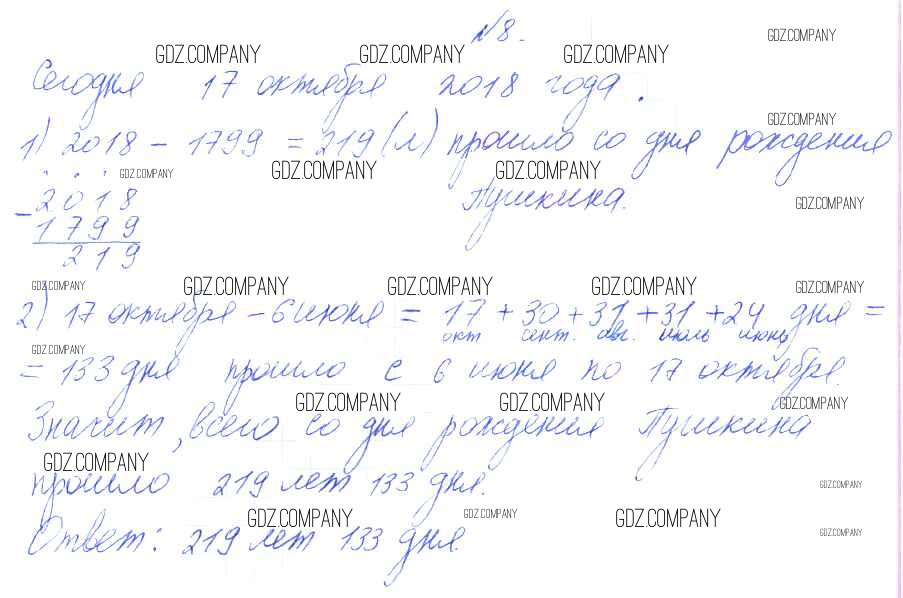 №8.
GDZ.COMPANY GDZ.COMPANY GDZ.COMPANY GDZ.COMPANY
Сегодня 17 октября 2018 года.
GDZ.COMPANY
1) 2018 - 1799 = 219 (л) прошло со дня рождения
GDZ.COMPANY GDZ.COMPANY GDZ.COMPANY
Пушкина.
GDZ.COMPANY
- 2018
1799
219
GDZ.COMPANY GDZ.COMPANY GDZ.COMPANY GDZ.COMPANY GDZ.COMPANY
2) 17 октября - 6 июня = 17 + 30 + 31 + 31 + 24 дня =
окт сент. авг. июль июнь
GDZ.COMPANY
= 133 дня прошло с 6 июня по 17 октября.
GDZ.COMPANY GDZ.COMPANY GDZ.COMPANY
Значит, всего со дня рождения Пушкина
GDZ.COMPANY
прошло 219 лет 133 дня.
GDZ.COMPANY
GDZ.COMPANY GDZ.COMPANY GDZ.COMPANY
Ответ: 219 лет 133 дня.
GDZ.COMPANY